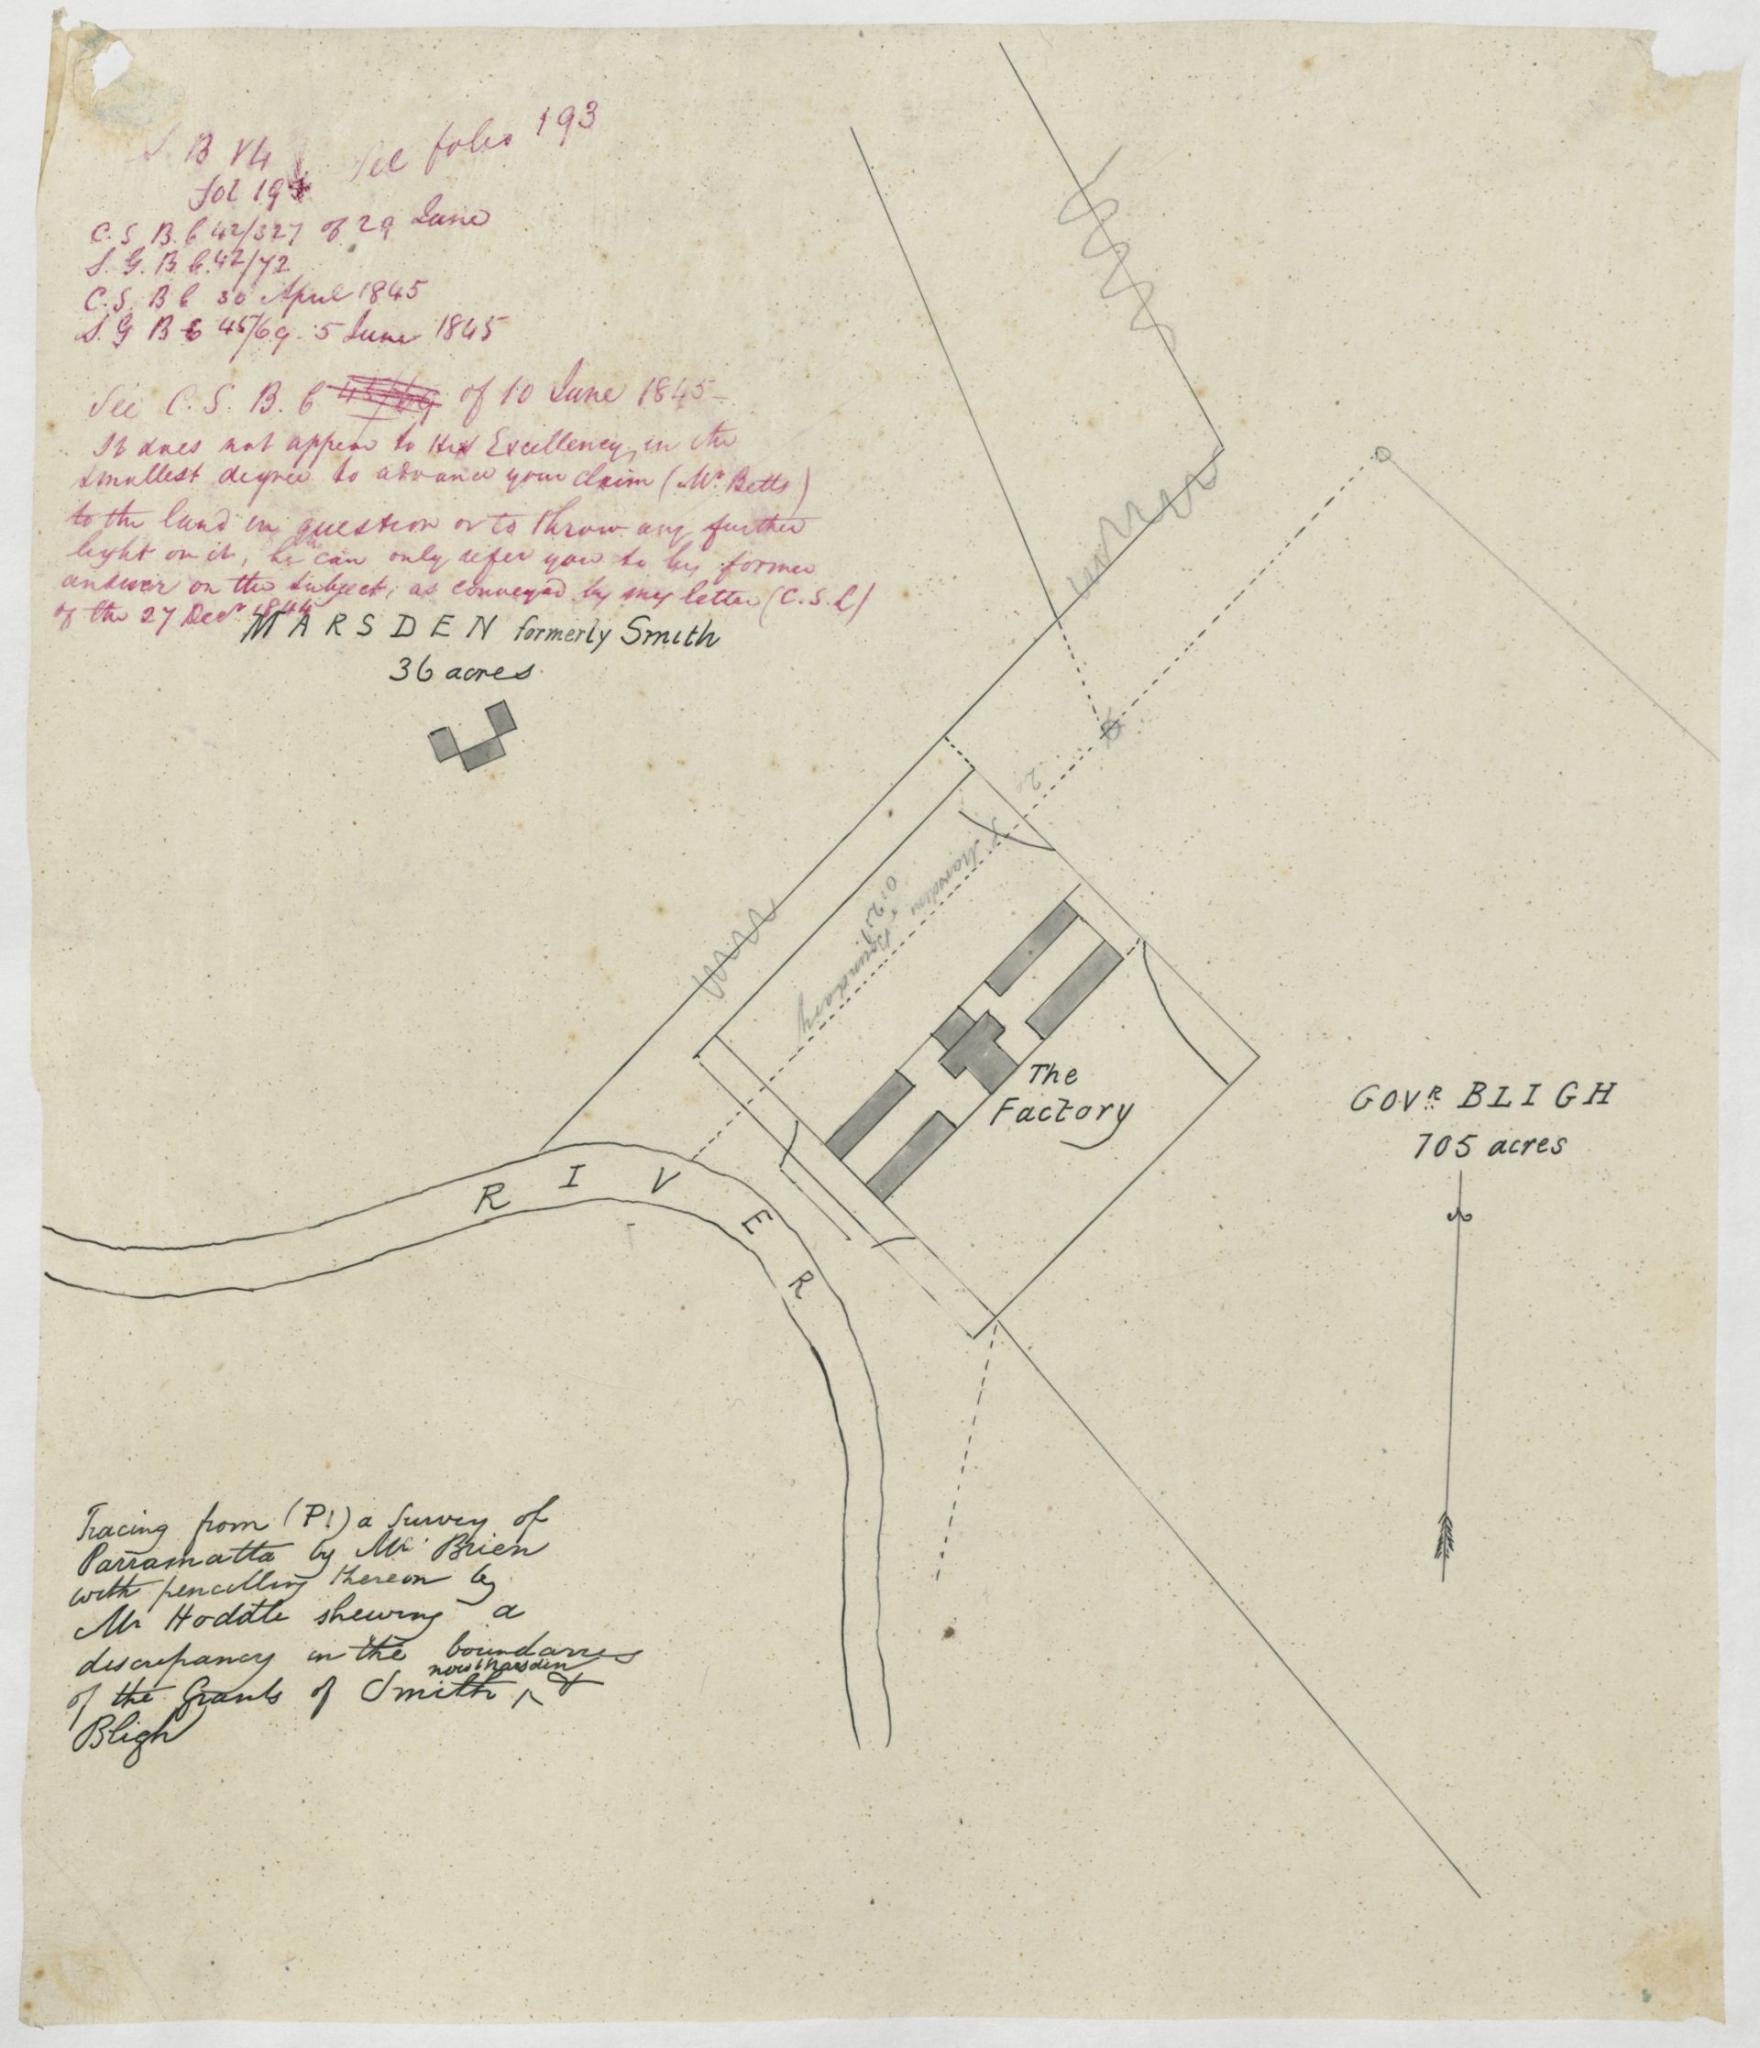 S. B V4 See folio 193
fol 194
C. S. B. 6 42/327 of 29 June
S. G. B. 6. 42/72
C. S. B 6 30 April 1845
S. G B 6 45/69. 5 June 1845
See C. S. B. 6 45/69 of 10 June 1845
It does not appear to His Excellency, in the
smallest degree to advance your claim (Mr. Betts)
to the land in question or to throw any further
light on it, he can only refer you to his former
answer on the subject, as conveyed by my letter (C.S.L)
of the 27 Decr 1844
MARSDEN formerly Smith
36 acres
20
Mr Marsden
Boundary
The
Factory
GOVR BLIGH
705 acres
RIVER
Tracing from (P!) a Survey of
Parramatta by Mr Brien
with pencilling thereon by
Mr Hoddle shewing a
discrepancy in the boundaries
now Marsden
of the Grants of Smith ^ &
Bligh